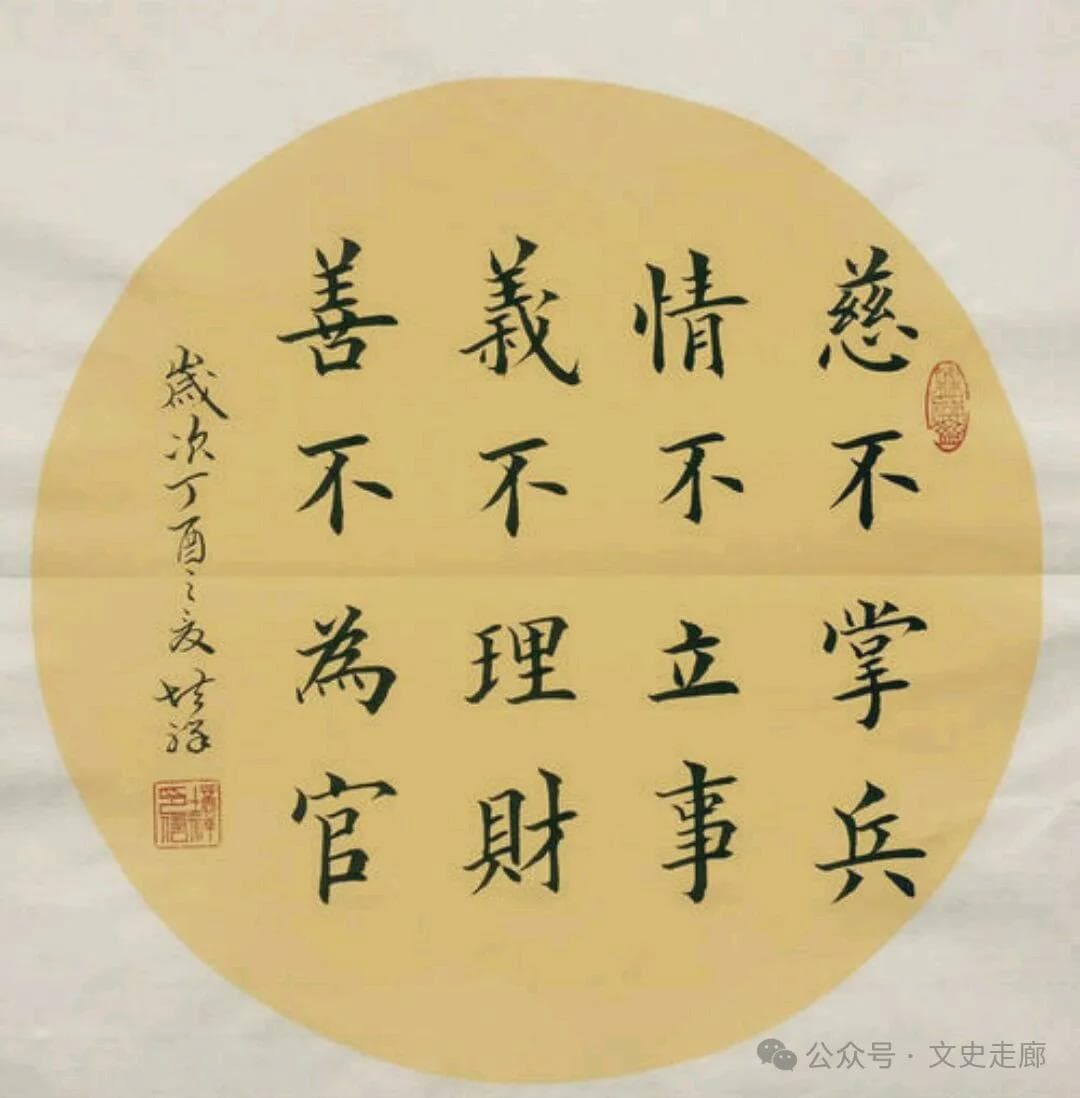 慈不掌兵
情不立事
義不理財
善不為官
歲次丁酉之夏培祥
公众号·文史走廊